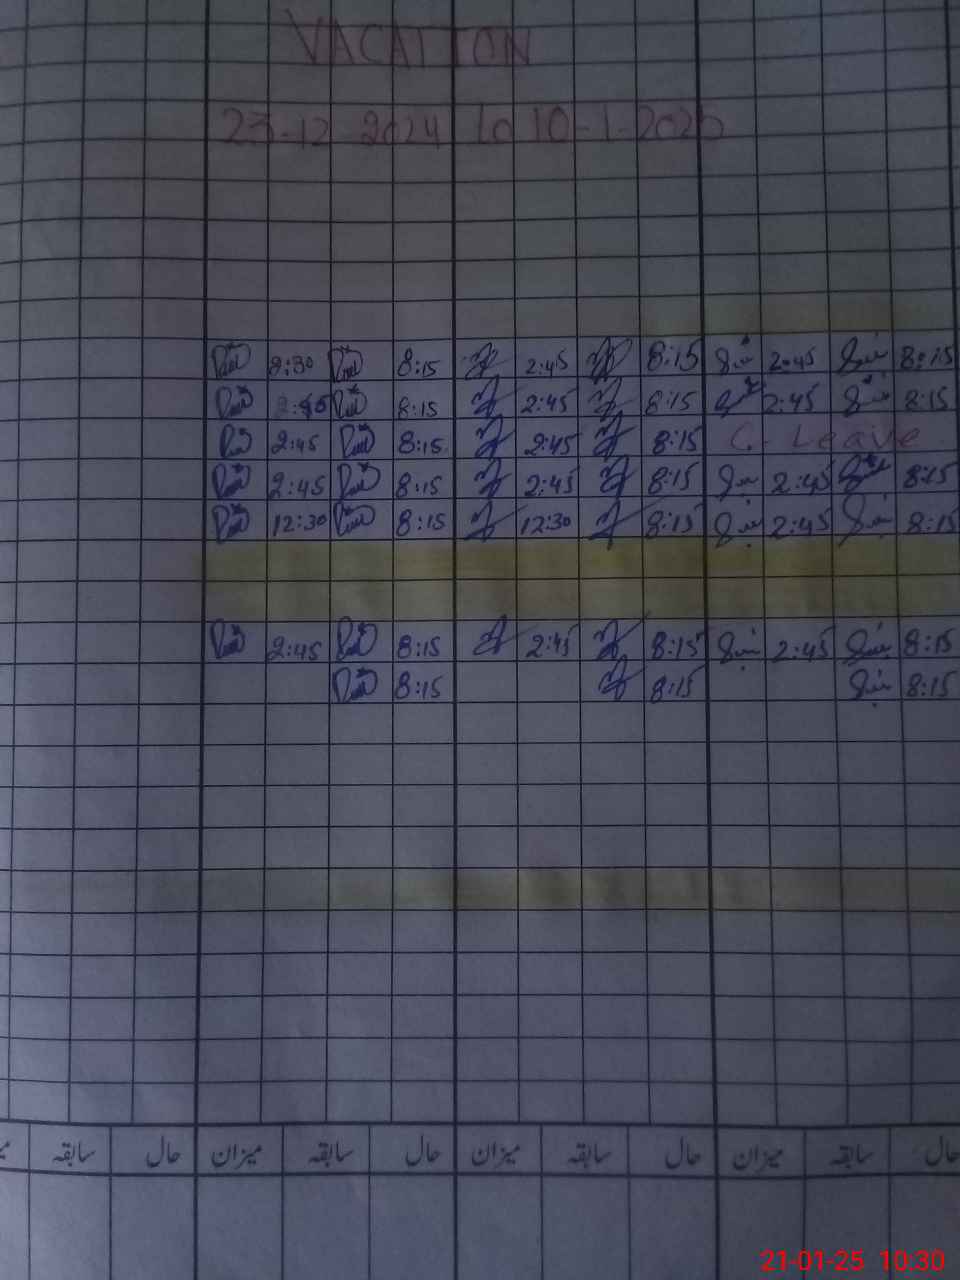 VACATION
23-12 2024 to 10-1-2025
8:30 8:15 2:45 8:15 2:45 8:15
2:45 8:15 2:45 8:15 2:45 8:15
2:45 8:15 2:45 8:15 C. Leave
2:45 8:15 2:45 8:15 2:45 8:15
12:30 8:15 12:30 8:15 2:45 8:15
2:45 8:15 2:45 8:15 2:45 8:15
8:15 8:15 8:15
حال سابقہ میزان حال سابقہ میزان حال سابقہ میزان حال سابقہ
21-01-25 10:30